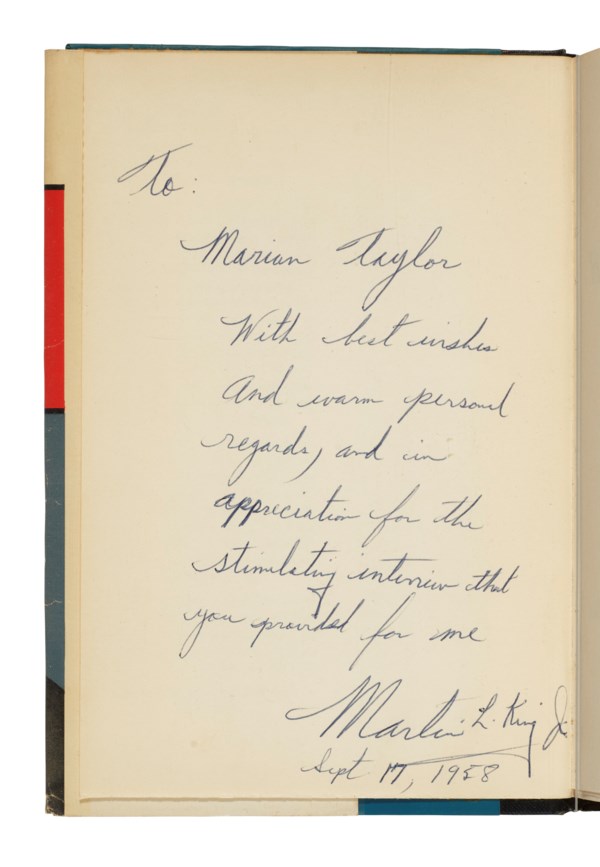 To:
Marian Taylor
With best wishes
And warm personal
regards, and in
appreciation for the
stimulating interview that
you provided for me
Martin L. King Jr.
Sept. 17, 1958